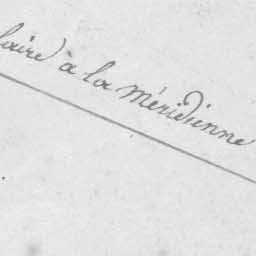 laire à la Méridienne